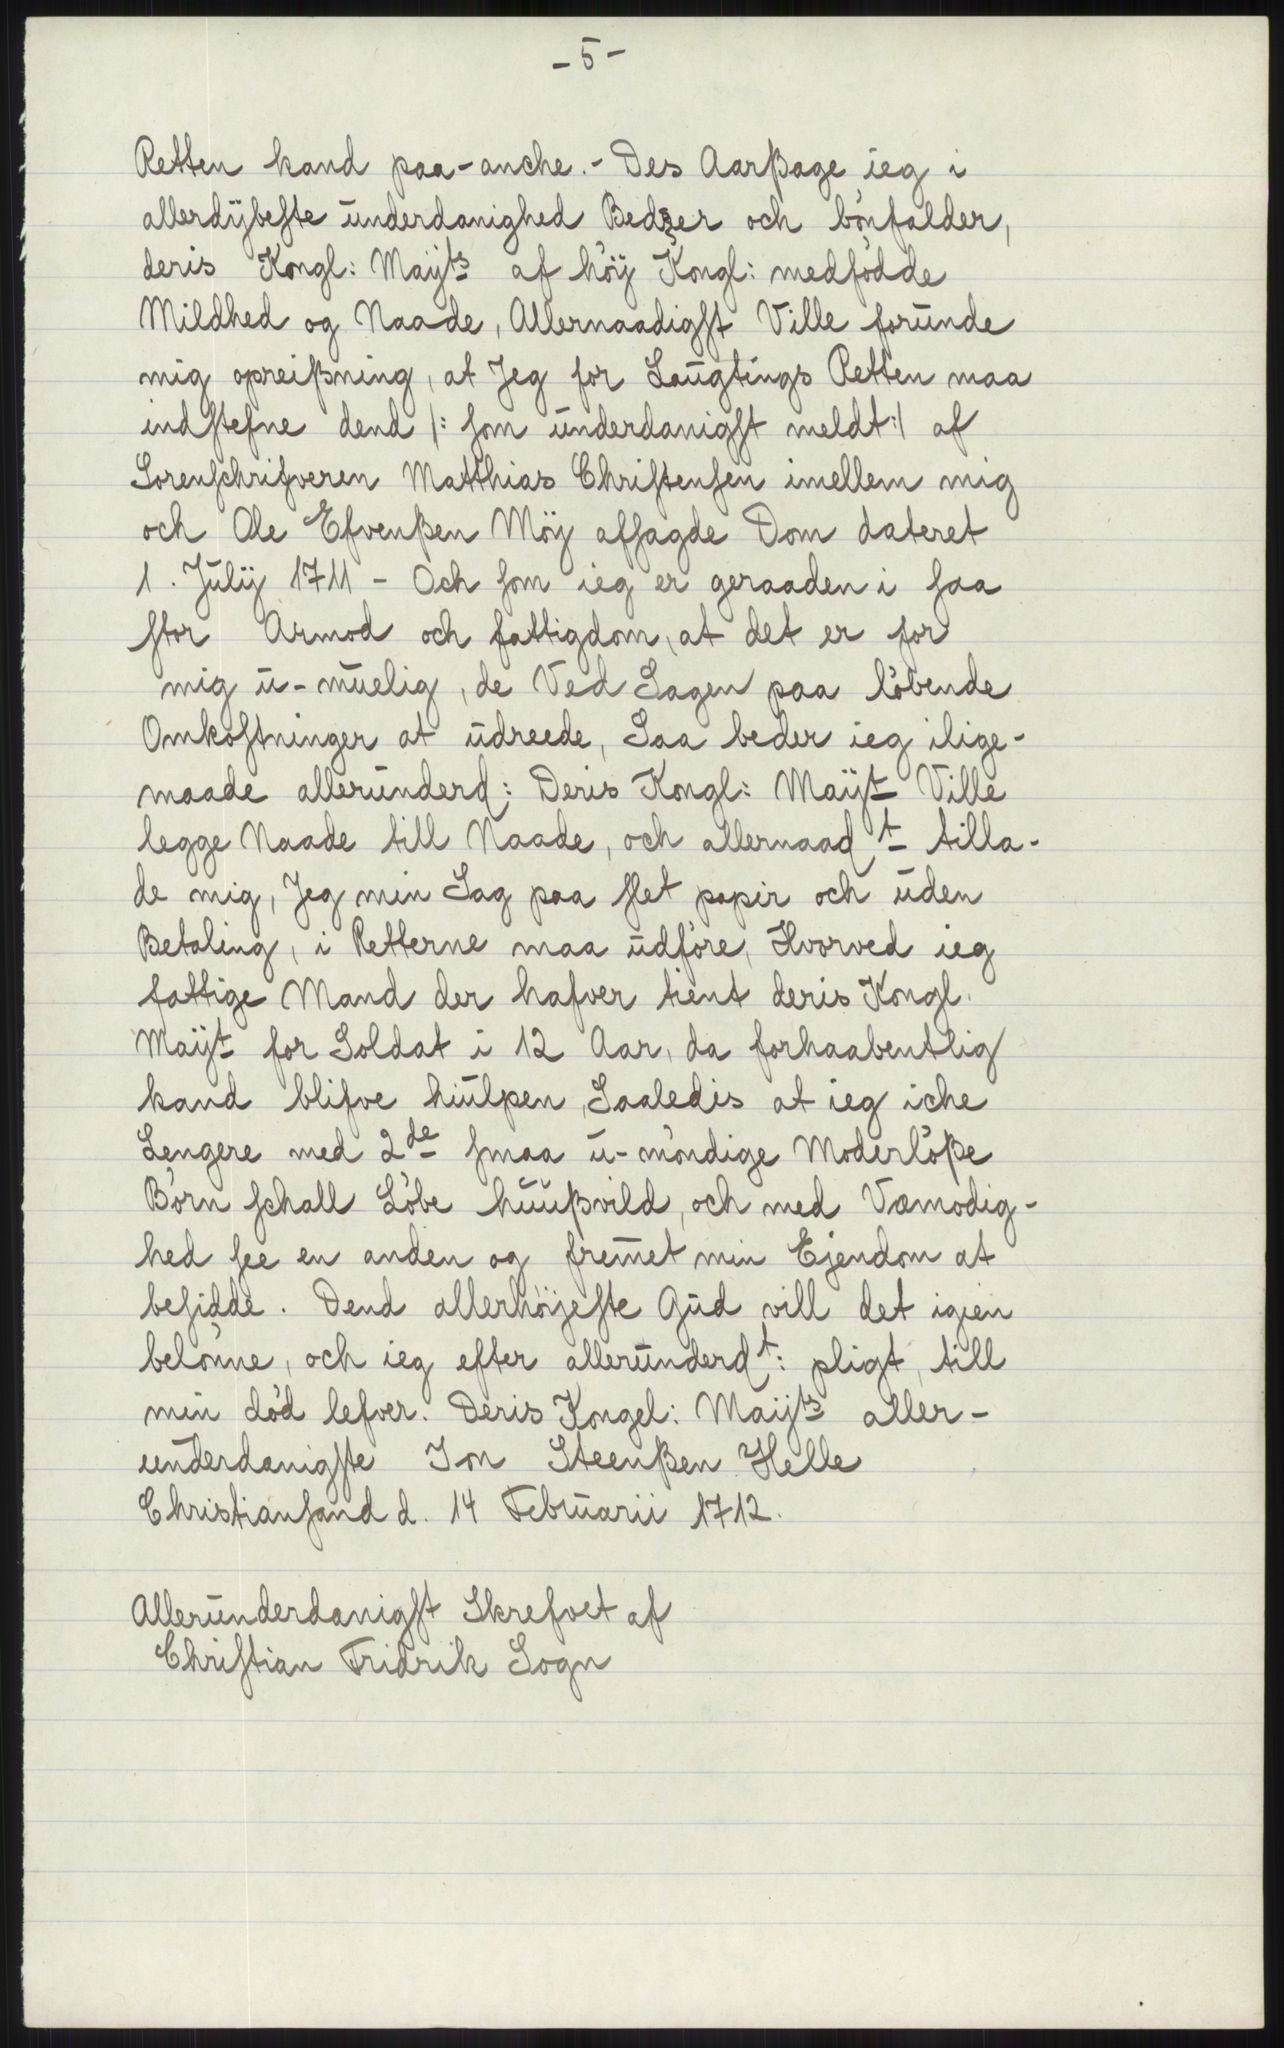 - 5 -
Retten kand paa-anche. - Des Aarßage ieg i
allerdÿbeste ūnderdanighed Bedzer och bönfalder,
deris Kongl: Maÿts af höÿ Kongl: medfödde
Mildhed og Naade, Allernaadigst Ville forūnde
mig opreißning, at Jeg for Laūgtings Retten maa
indstefne dend /: som ūnderdanigst meldt:/ af
Sorenschrifveren Matthias Christensen imellem mig
och Ole Efvenßen Möÿ afsagde Dom dateret
1. Jūlÿ 1711 - Och som ieg er geraaden i saa
stor Armod och fattigdom, at det er for
mig ū-mūelig, de Ved Sagen paa löbende
Omkostninger at ūdreede, Saa beder ieg ilige-
maade allerūnderd: Deris Kongl: Maÿt Ville
legge Naade till Naade, och allernaadt tilla-
de mig, Jeg min Sag paa slet papir och ūden
Betaling, i Retterne maa ūdföre, Hvorved ieg
fattige Mand der hafver tient deris Kongl.
Maÿt for Soldat i 12 Aar, da forhaabentlig
kand blifve hiūlpen, Saaledis at ieg iche
Lengere med 2de smaa ū-möndige Moderlöße
Börn schall Löbe hūūßvild, och med Væmodig-
hed see en anden og frem̅et min Ejendom at
besidde. Dend allerhöÿeste Gūd vill det igien
belönne, och ieg efter allerūnderdt: pligt, till
min död lefver. Deris Kongel: Maÿts aller-
ūnderdanigste Jon Steenßen Helle
Christiansand d. 14 Febrūarii 1712.
Allerūnderdanigst Skrefvet af
Christian Fridrik Sogn